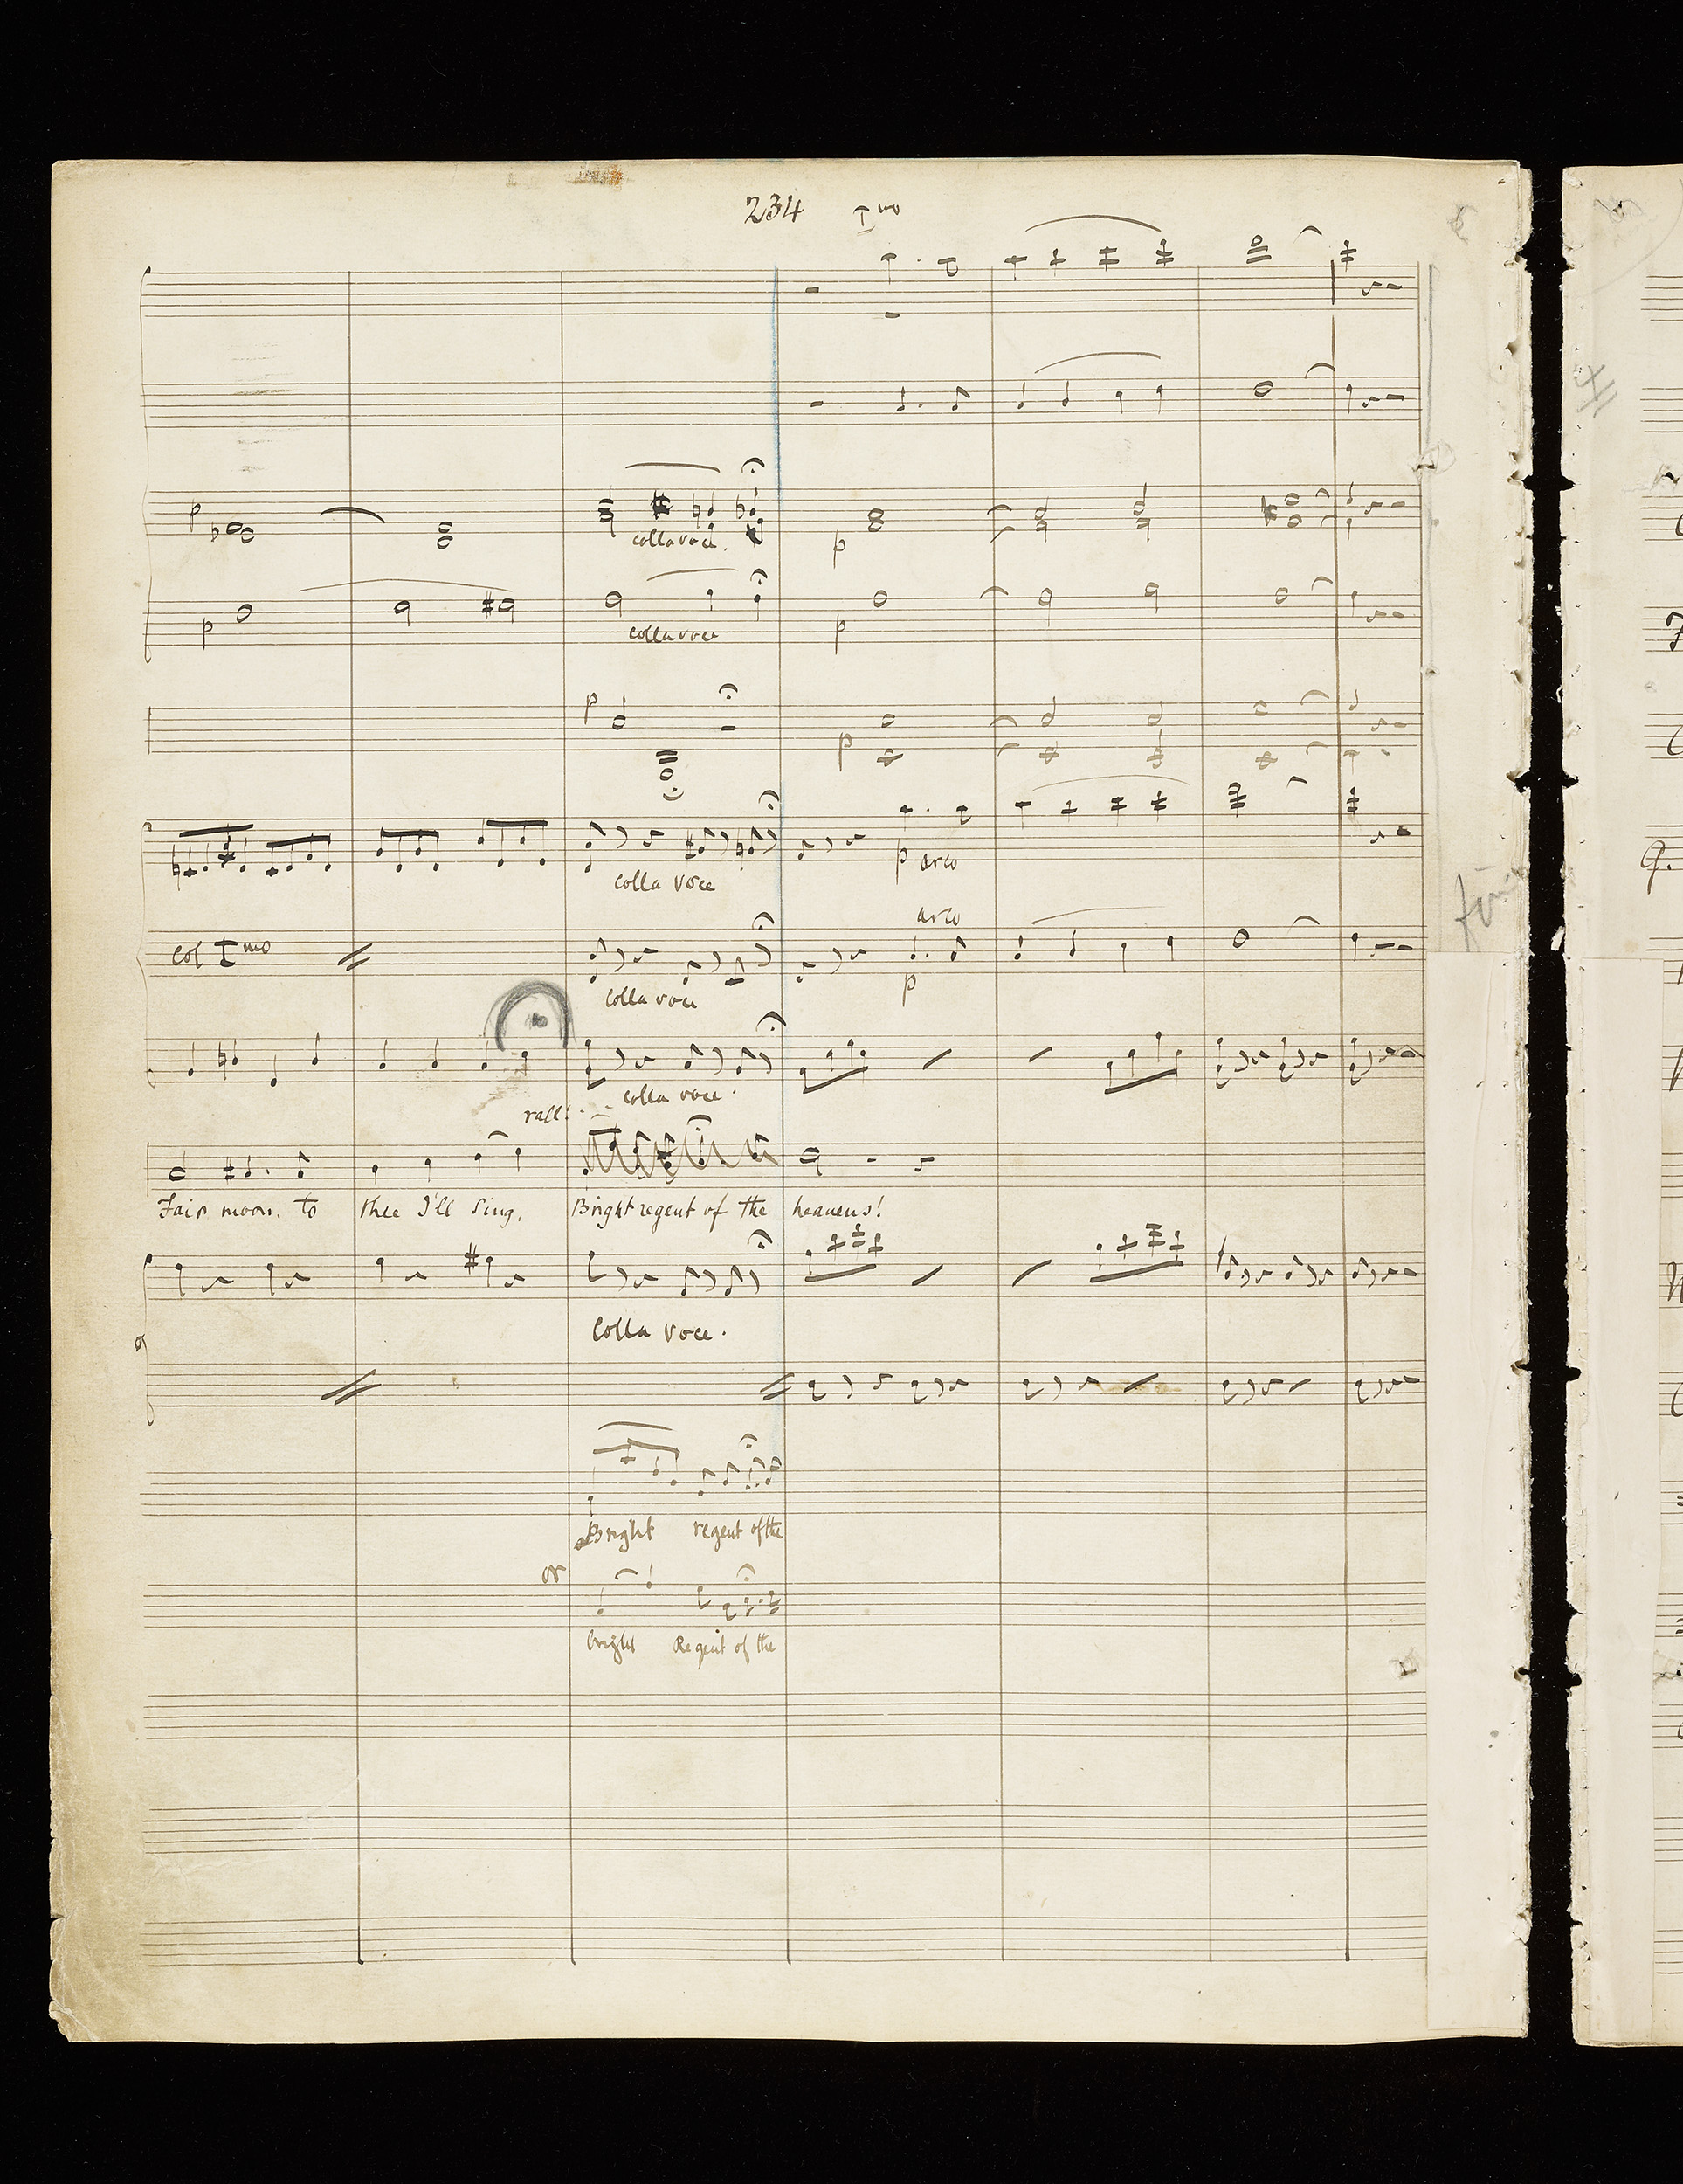 234 Imo
p
colla voce. p
p colla voce p
p p
colla voce p arco
arco
Col Imo colla voce p
colla voce.
rall:
Fair moon, to thee I'll sing, Bright regent of the heavens!
Colla voce.
Bright regent of the
or
bright Regent of the